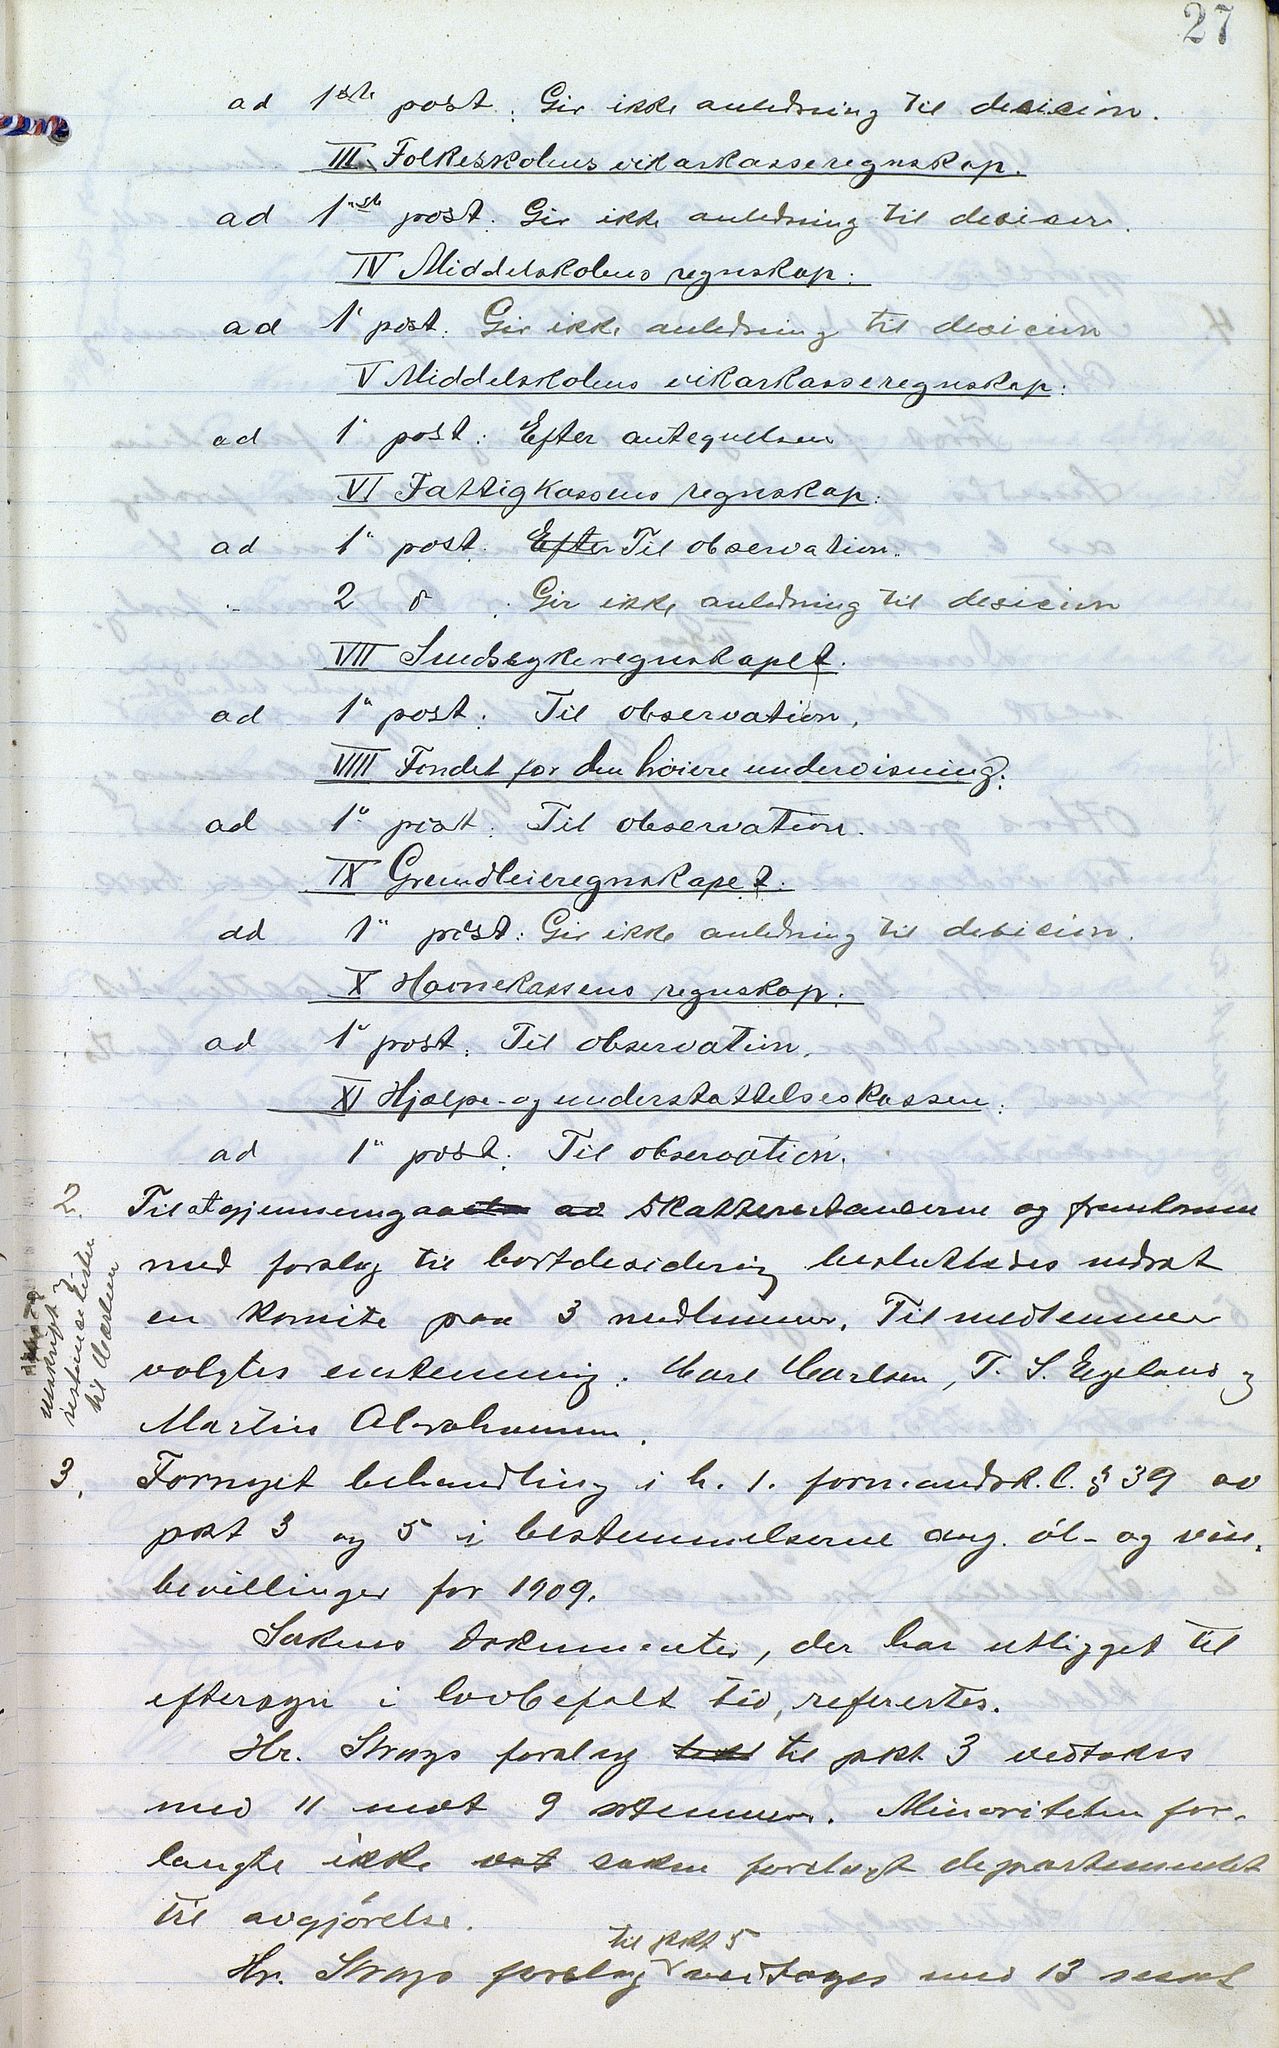 27
ad 1ste post: Gir ikke anledning til desicion.
III Folkeskolens vikarkasseregnskap.
ad 1ste post: Gir ikke anledning til desicion.
IV Middelskolens regnskap:
ad 1" post: Gir ikke anledning til desicion
V Middelskolens vikarkasseregnskap:
ad 1" post: Efter antegnelsen
VI Fattigkassens regnskap:
ad 1" post: Efter Til observation.
" 2 d : Gir ikke anledning til desicion
VII Sindssykeregnskapet.
ad 1" post: Til observation.
VIII Fondet for den høiere undervisning:
ad 1" post: Til observation.
IX Grundleieregnskapet:
ad 1" post: Gir ikke anledning til desicion.
X Havnekassens regnskap:
ad 1" post: Til observation.
XI Hjælpe- og understøttelseskassen:
ad 1" post: Til observation.
2. Til at gjennemgaa av skatterestancerne og fremkomme
med forslag til bortdesidering besluttedes nedsat
en komite paa 3 medlemmer. Til medlemmer
valgtes enstemmig: Carl Carlsen, T. S. Egeland og
Martin Abrahamsen.
utskrift og
restanselisten
til Carlsen
3. Fornyet behandling i h. t. formandsk.l. § 39 av
pkt 3 og 5 i bestemmelserne ang. øl- og vin-
bevillinger for 1909.
Sakens dokumenter, der har utligget til
eftersyn i lovbefalt tid, refertes.
Hr. Strays forslag til pkt 3 vedtokes
med 11 mot 9 stemmer. Minoriteten for-
langte ikke saken forelagt departementet
til avgjørelse.
til pkt 5
Hr. Strays forslag vedtoges med 13 mot